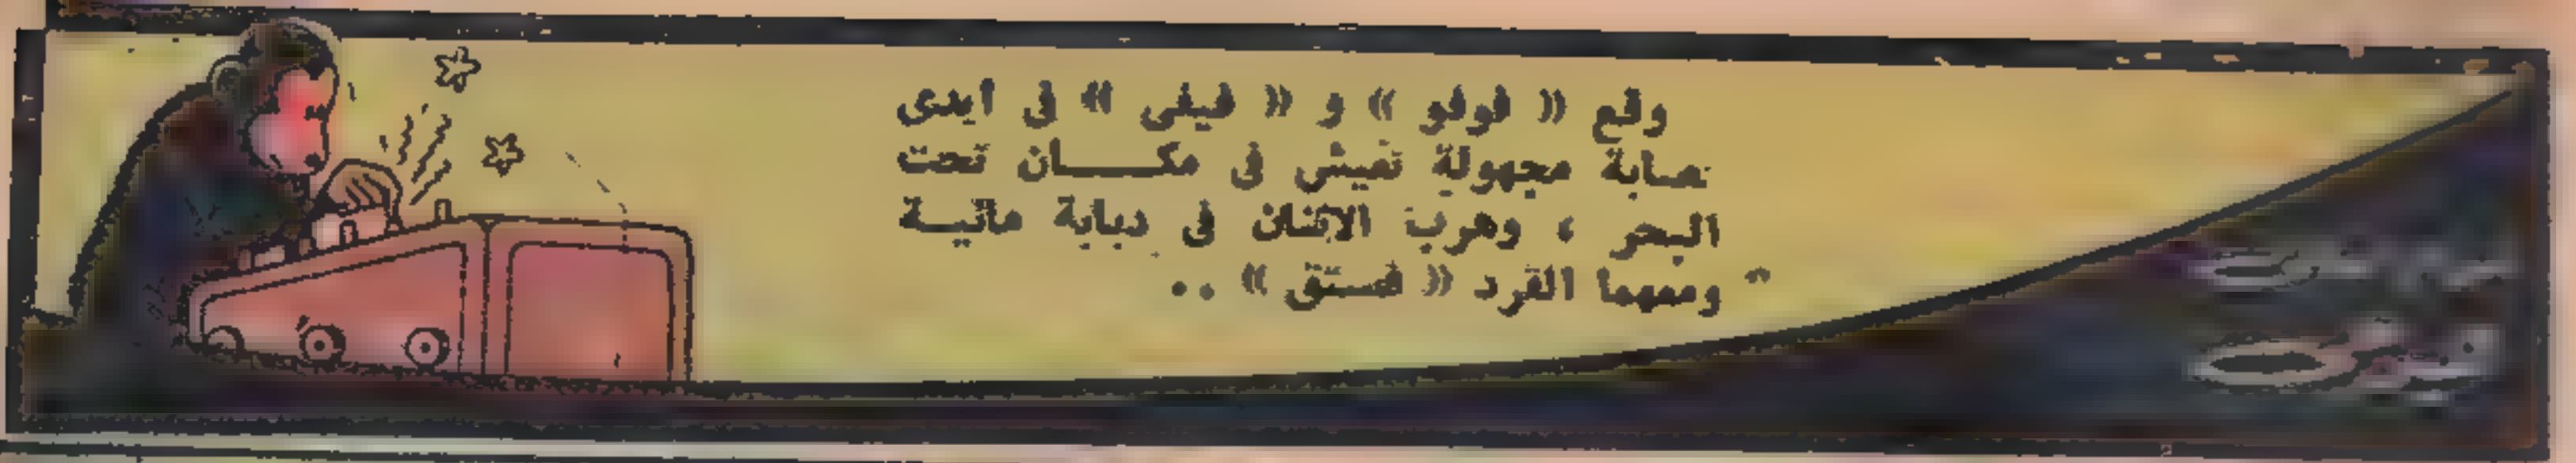 وقع « فوفو » و « فيفى » فى أيدى
عصابة مجهولة تعيش فى مكـــان تحت
البحر ، وهرب الاثنان فى دبابة مائيـة
ومعهما القرد « فستق » ..